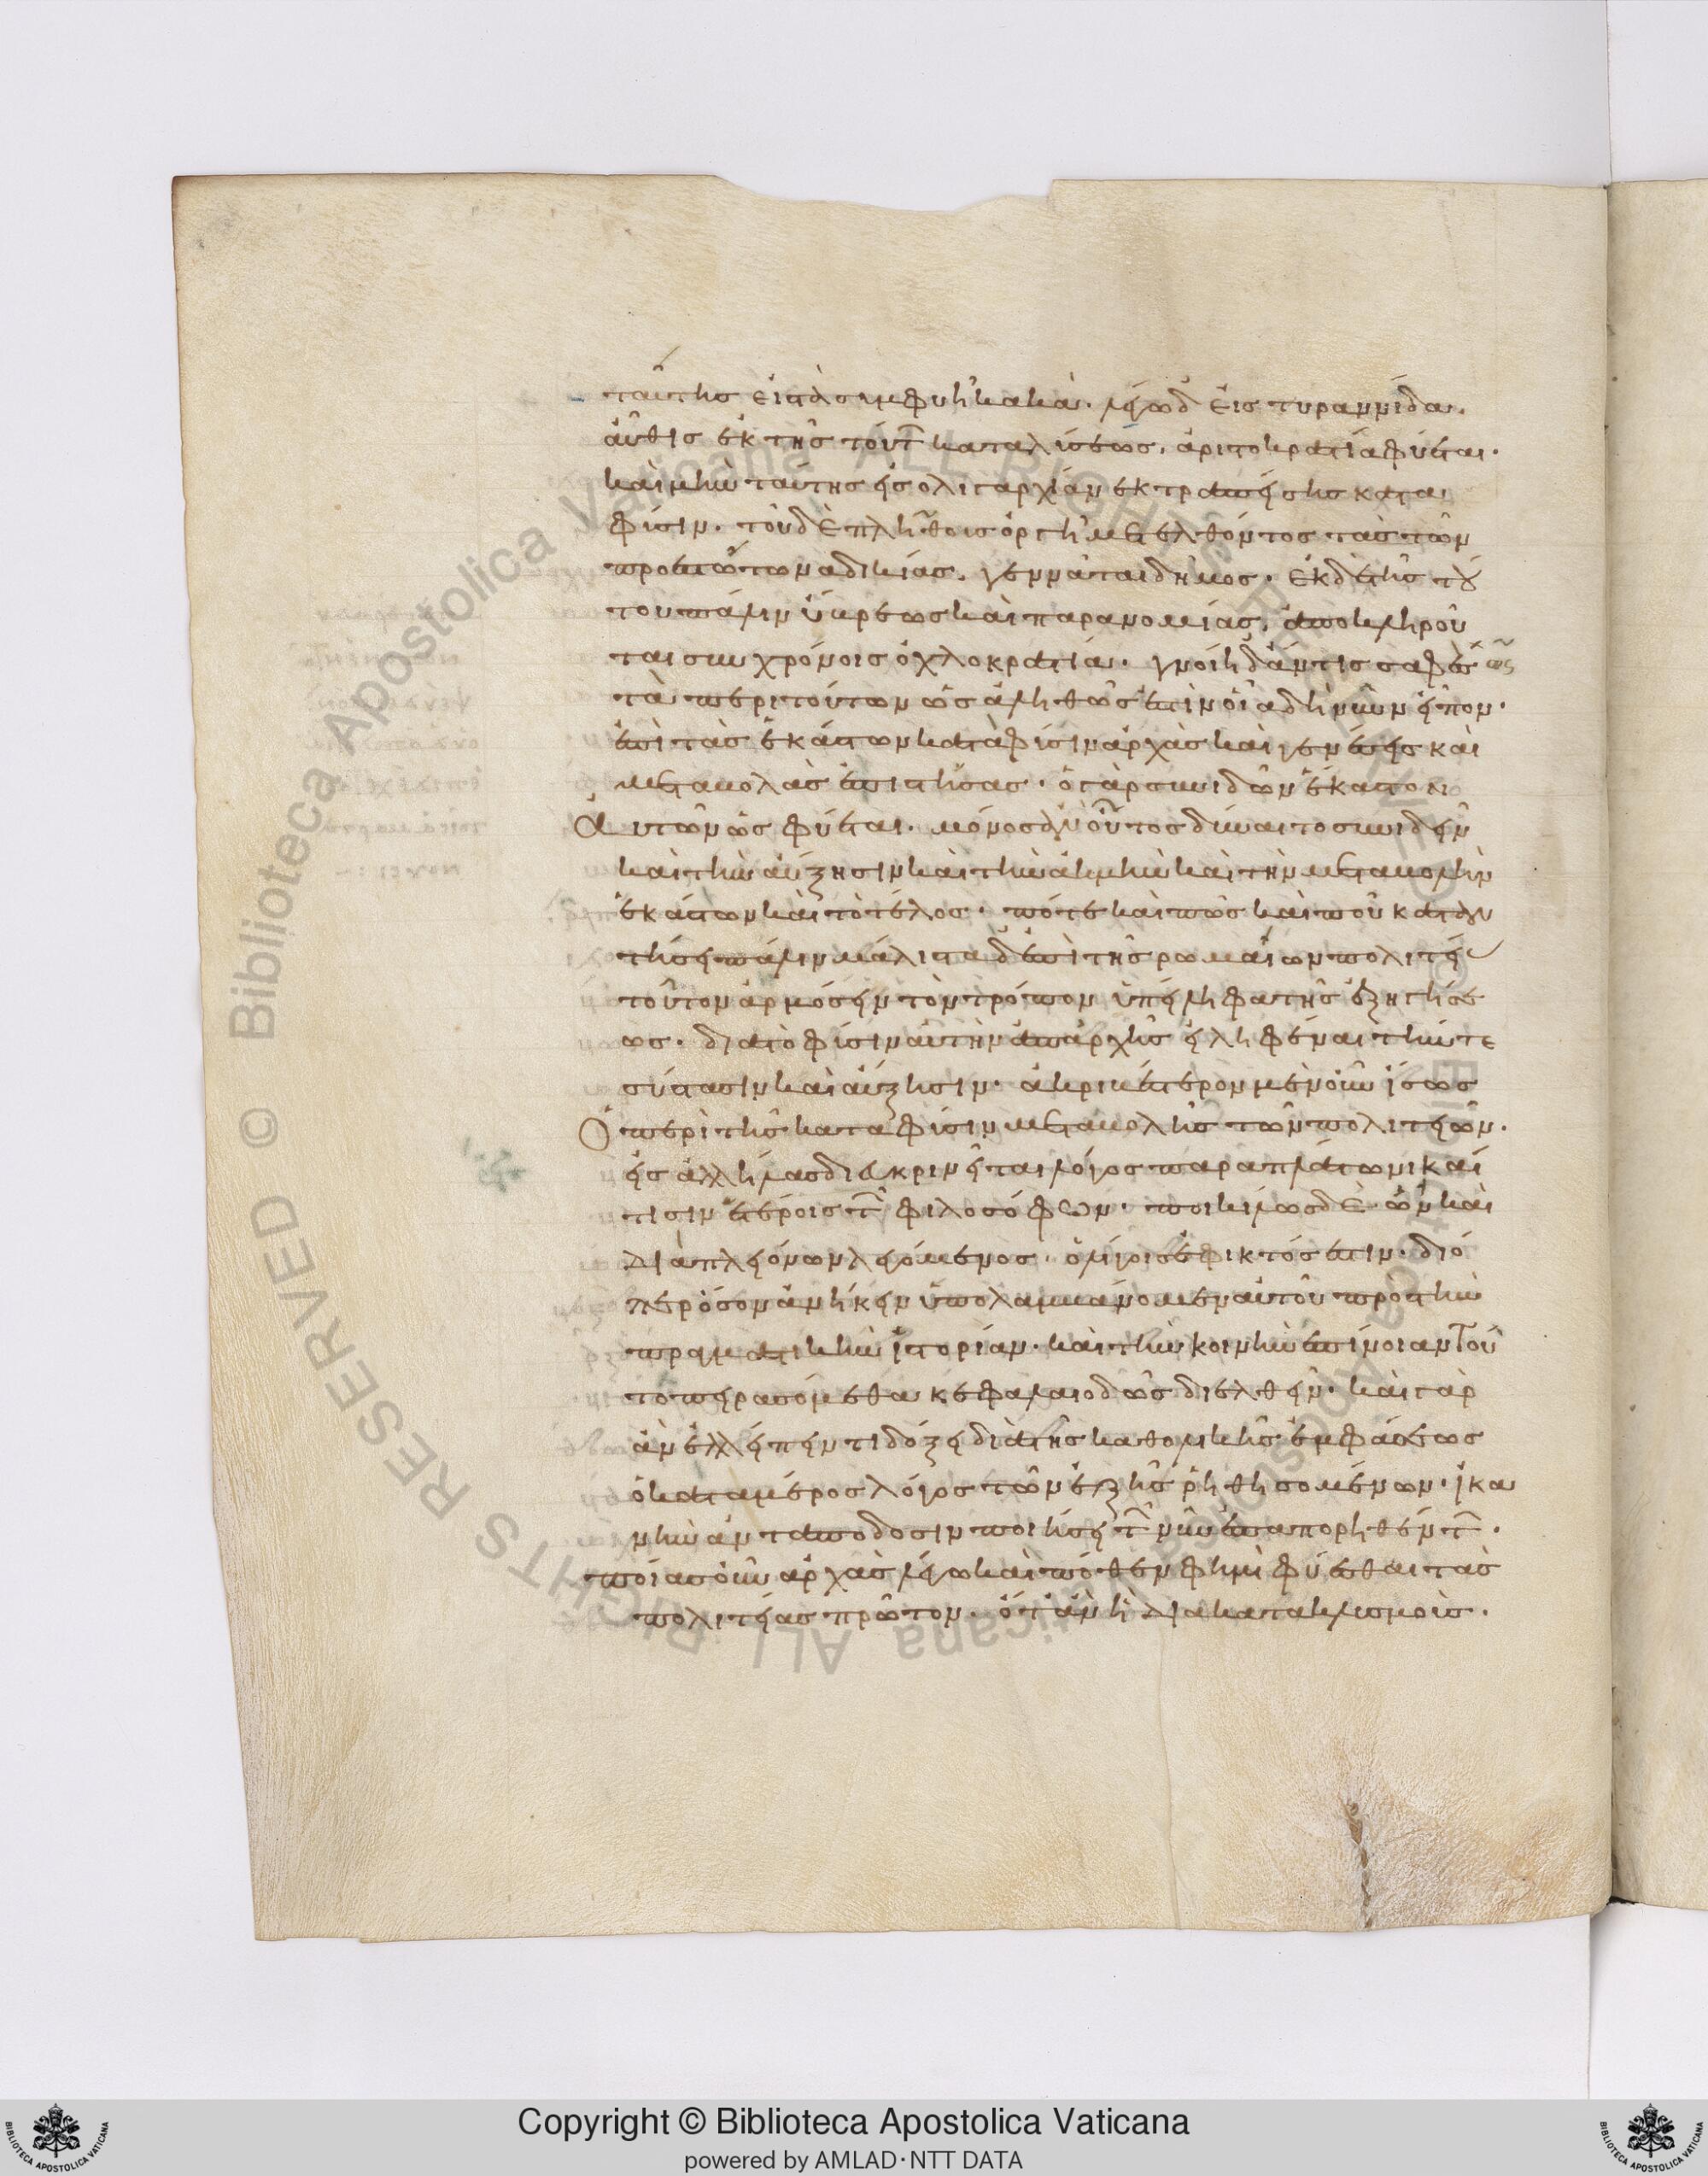 ταύτης εἰς τὰ συμφυῆ κακά. λέγω δ εἰς τυραννίδα.
αὖθις ἐκ τῆς τούτ καταλύσεως, ἀριστοκρατία φύεται.
καὶ μὴν ταύτης εἰς ὀλιγαρχίαν ἐκτραπείσης κατα
φύσιν. τοῦ δὲ πλήθους ὀργῇ μετελθόντος τὰς τῶν
προεστώτων ἀδικίας, γεννᾶται δῆμος. ἐκ δὲ τῆς τού
του πάλιν ὕβρεως καὶ παρανομίας, ἀποπληροῦ
ται συν χρόνοις ὀχλοκρατία. γνοίη δ ἄν τις σαφέστ
τὰ περι τούτων ὡς ἀληθῶς ἐστὶν οἷα δὴ νῦν εἶπον.
ἐπὶ τὰς ἑκάστων κατὰ φύσιν ἀρχὰς καὶ γενέσεις καὶ
μεταβολὰς ἐπιστήσας. ὁ γὰρ συνιδὼν ἕκαστον
αὐτῶν ὡς φύεται. μόνος ἂν οὗτος δύναιτο συνιδεῖν
καὶ τὴν αὔξησιν καὶ τὴν ἀκμὴν καὶ τὴν μεταβολὴν
ἑκάστων καὶ τὸ τέλος. πότε καὶ πῶς καὶ ποῦ καταν
τήσει πάλιν μάλιστα δ ἐπὶ τῆς ρωμαίων πολιτεί
τοῦτον ἁρμόσειν τὸν τρόπον ὑπείληφα τῆς ἐξηγήσε
ως. διὰ τὸ φύσιν αὐτὴν ἀπ ἀρχῆς εἰληφέναι τήν τε
σύστασιν καὶ αὔξησιν. ἀκριβέστερον μὲν οὖν ἴσως
ὁ περὶ τῆς κατα φύσιν μεταβολῆς τῶν πολιτειῶν.
εἰς ἀλλήλας διευκρινεῖται λόγος παρα πλάτωνι καί
τισιν ἑτέροις τ φιλοσόφων. ποικίλος δὲ ὢν καὶ
διὰ πλειόνων λεγόμενος. ὀλίγοις ἐφικτός ἐστιν. διό
περ ὅσον ἀνήκειν ὑπολαμβάνομεν αὐτοῦ πρὸς τὴν
πραγματικὴν ἱστορίαν. καὶ τὴν κοινὴν ἐπίνοιαν τοῦ
το πειρασόμεθα κεφαλαιωδῶς διελθεῖν. καὶ γὰρ
ἂν ἐλλείπειν τι δόξῃ διὰ τῆς καθολικῆς ἐμφάσεως
ὁ κατα μέρος λόγος τῶν ἑξῆς ῥηθησομένων. ἱκα
νὴν ἀνταπόδοσιν ποιήσει τ νῦν ἐπαπορηθέντ.
ποίας οὖν ἀρχὰς λέγω καὶ πόθεν φημὶ φύεσθαι τὰς
πολιτείας πρῶτον. ὅταν ἢ δια κατακλυσμοὺς.